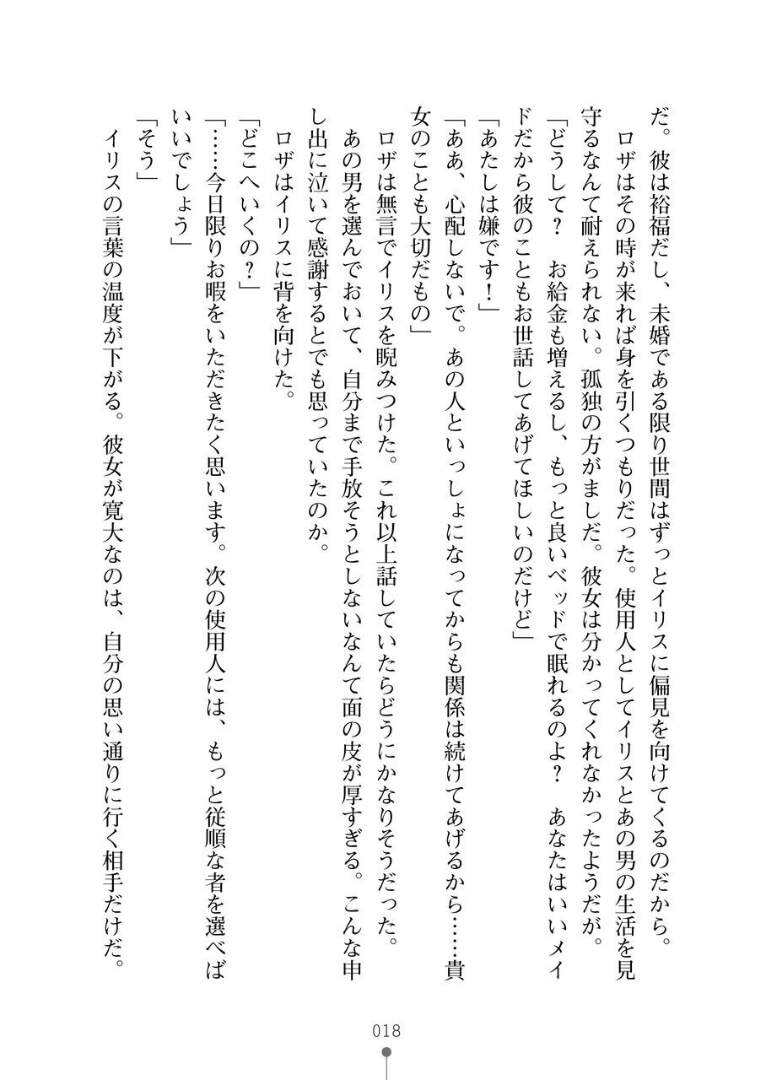 だ。彼は裕福だし、未婚である限り世間はずっとイリスに偏見を向けてくるのだから。
　ロザはその時が来れば身を引くつもりだった。使用人としてイリスとあの男の生活を見
守るなんて耐えられない。孤独の方がましだ。彼女は分かってくれなかったようだが。
「どうして？　お給金も増えるし、もっと良いベッドで眠れるのよ？　あなたはいいメイ
ドだから彼のこともお世話してあげてほしいのだけど」
「あたしは嫌です！」
「ああ、心配しないで。あの人といっしょになってからも関係は続けてあげるから……貴
女のことも大切だもの」
　ロザは無言でイリスを睨みつけた。これ以上話していたらどうにかなりそうだった。
　あの男を選んでおいて、自分まで手放そうとしないなんて面の皮が厚すぎる。こんな申
し出に泣いて感謝するとでも思っていたのか。
　ロザはイリスに背を向けた。
「どこへいくの？」
「……今日限りお暇をいただきたく思います。次の使用人には、もっと従順な者を選べば
いいでしょう」
「そう」
　イリスの言葉の温度が下がる。彼女が寛大なのは、自分の思い通りに行く相手だけだ。
018